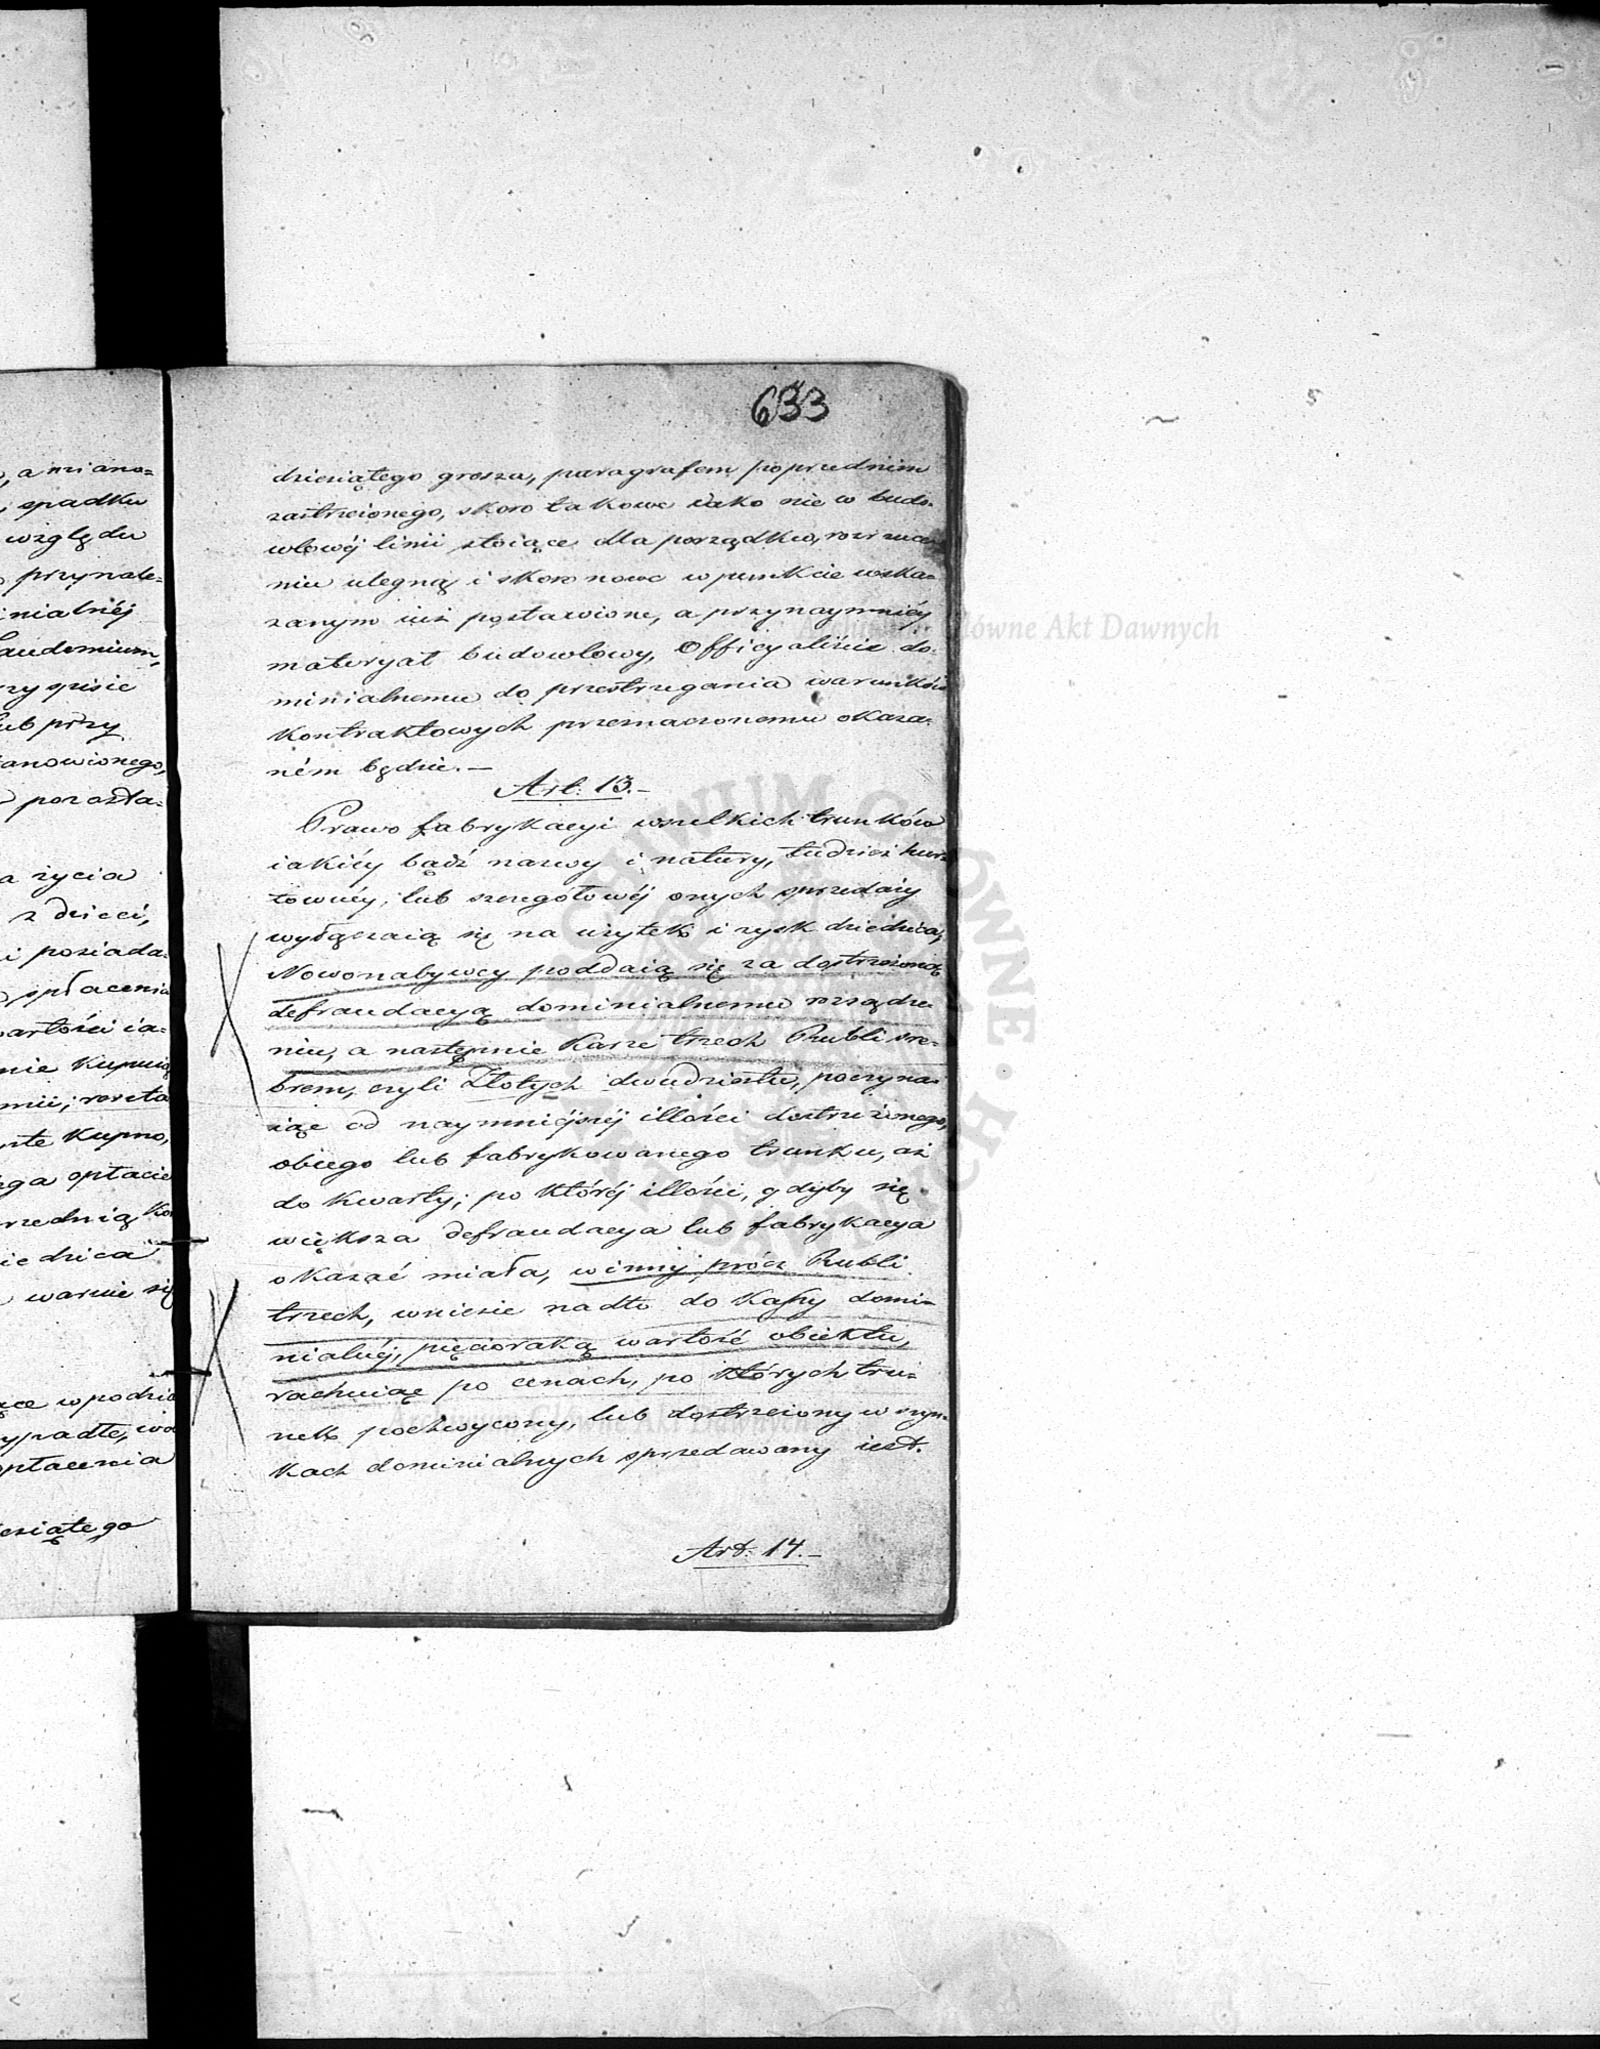 , a miano=
, spadku
względu
przynale=
inialnéj
audemium,
rzy spisie
lub przy
anowionego,
pozosta=
a życia
z dzieci,
i posiada=
spłacenia
artości ia=
nie kupuią
mii; reszta
rte kupno,
ga opłacie
rzednią Kon
iedzica
warnie się
ące w podzia
ypadłe, wa
opłacenia
esiątego
633
dziesiątego grosza, paragrafem poprzednim
zastrzeżonego, skoro takowe iako nie w budo-
wlowéj linii stoiące dla porządku, rozrzuce-
niu ulegną i skoro nowe w punkcie wska-
zanym iuż postawione, a przynaymniéy
materyał budowlowy, Officyaliście do-
minialnemu do przestrzegania warunków
kontraktowych przeznaczonemu okaza-
ném będzie.—
Art: 13.—
Prawo fabrykacyi wszelkich trunków
iakiéy bądź nazwy i natury, tudzież hur-
towéy, lub szczegółowéj onych sprzedaży
wyłączaią się na użytek i zysk dziedzica,
Nowonabywcy poddaią się za dostrzeżoną
defraudacyą dominialnemu rozsądze-
niu, a następnie karze trzech Rubli sre-
brem, czyli Złotych dwudziestu, poczyna-
iąc od naymniéjszéj illości dostrzeżonego,
obcego lub fabrykowanego trunku, aż
do kwarty; po któréj illości, gdyby się
większa defraudacya lub fabrykacya
okazać miała, winny prócz Rubli
trzech, wniesie nadto do Kassy domi-
nialnéj, pięcioraką wartość obiektu,
rachuiąc po cenach, po których tru-
nek pochwycony, lub dostrzeżony w szyn-
kach dominialnych sprzedawany iest.
Art: 14.—
Archiwum Główne Akt Dawnych
Archiwum Główne Akt Dawnych